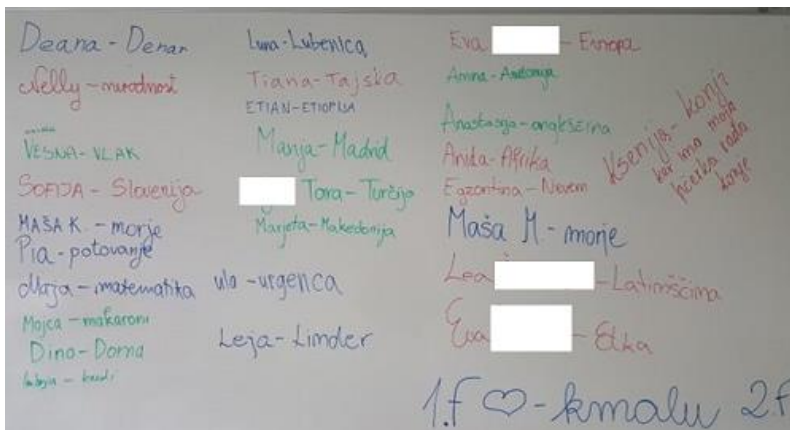 Deana - Denar
Nelly - narodnost
VESNA - VLAK
SOFIJA - Slovenija
MAŠA K. - morje
Pia - potovanje
Maja - matematika
Mojca - makaroni
Dino - Doma
Luna - Lubenica
Tiana - Tajska
ETIAN - ETIOPIJA
Manja - Madrid
Tora - Turčija
Marjeta - Makedonija
ula - urgenca
Leja - Limder
Eva - Evropa
Amna -
Anastasija - angleščina
Anida - Afrika
Egzontina - Nevem
Maša M. - morje
Lea - Latinščina
Eva - Etka
Ksenija - konj?
ker ima moja
hčerka rada
konje
1.f ♡ - kmalu 2.f